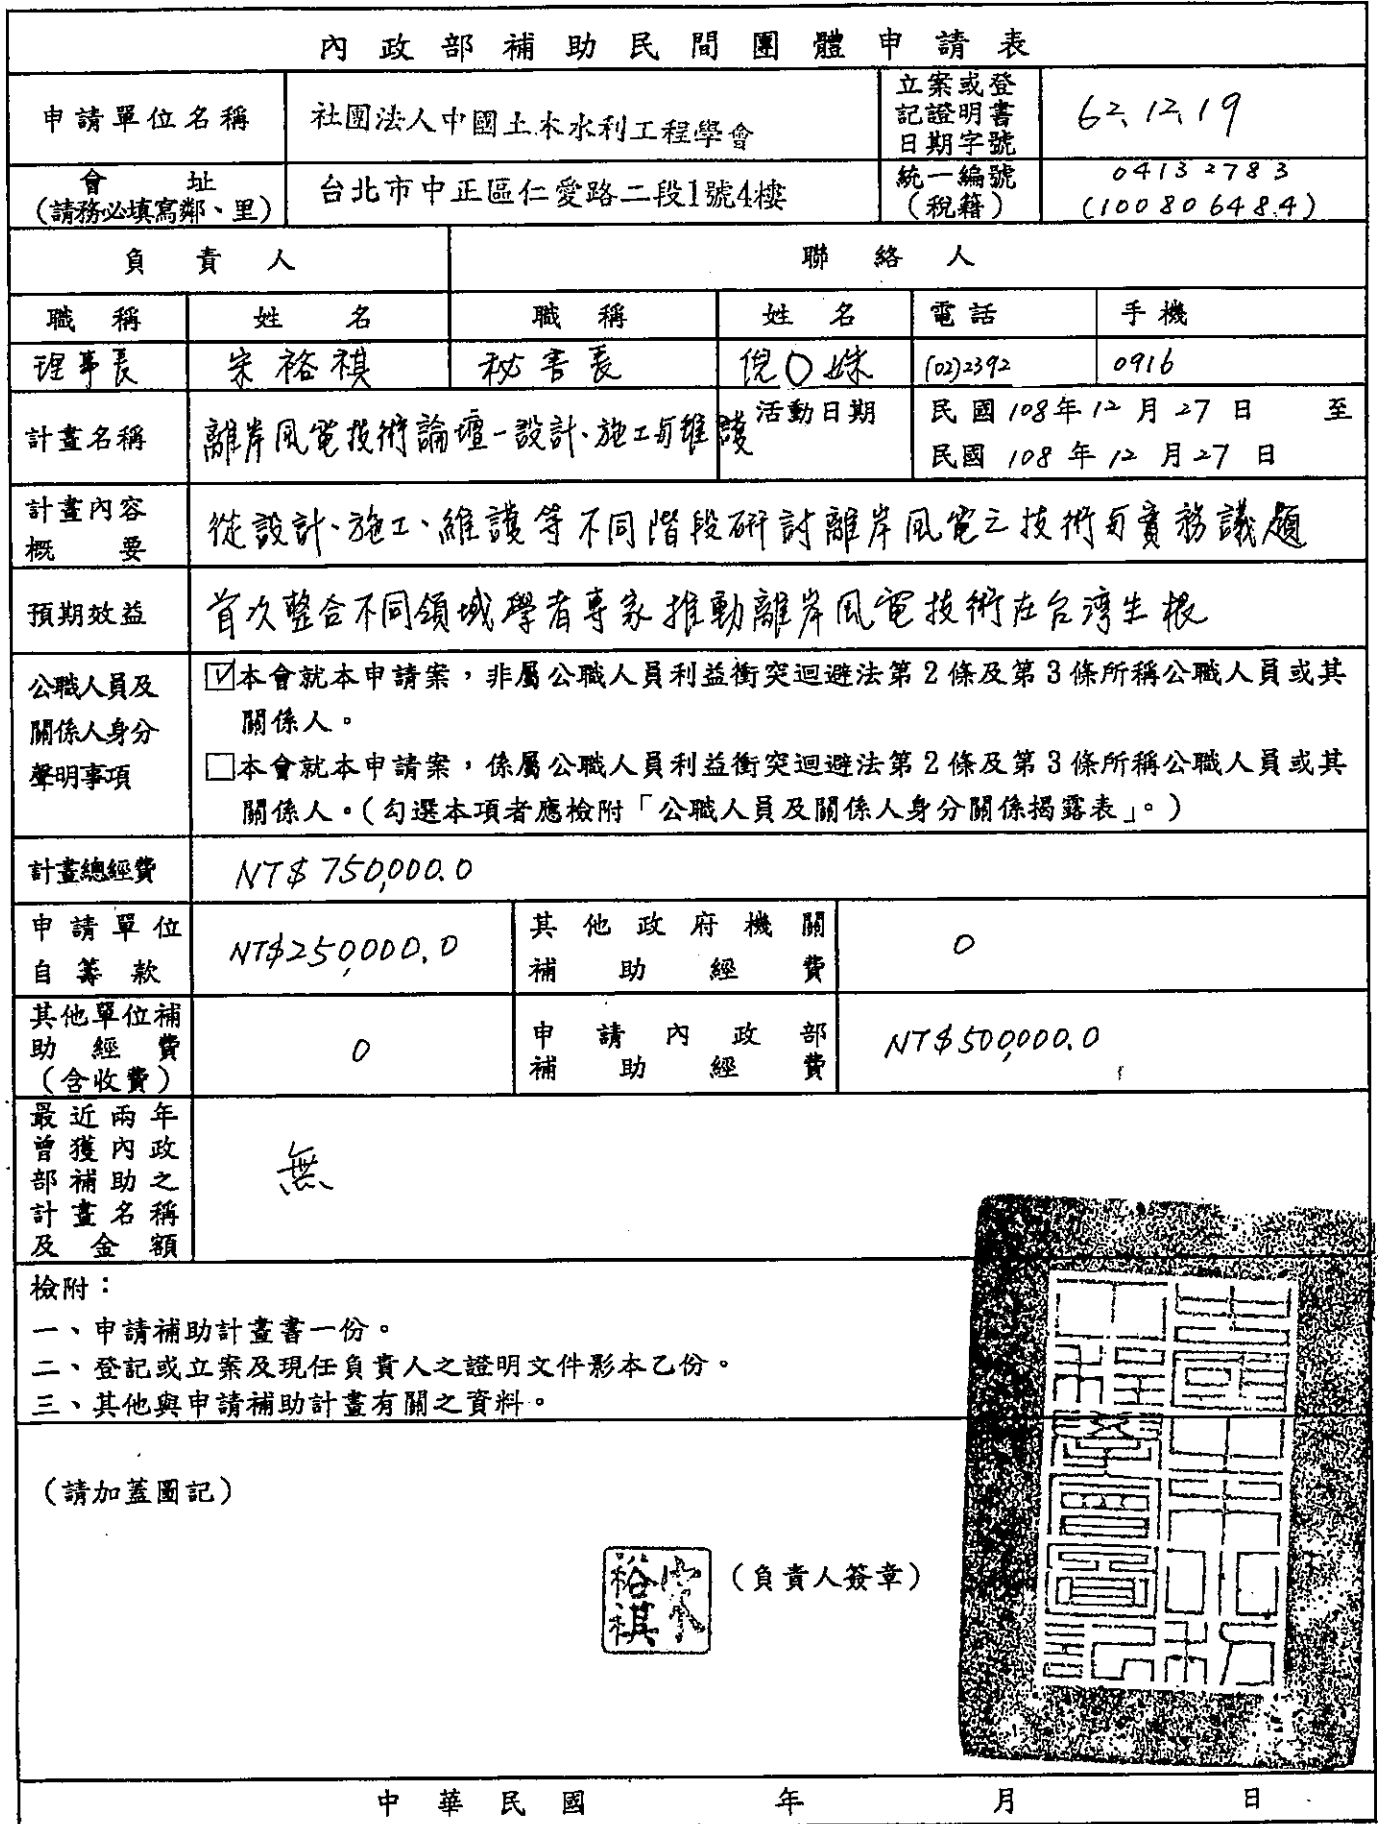 內政部補助民間團體申請表
申請單位名稱
社團法人中國土木水利工程學會
立案或登
記證明書
日期字號
62.12.19
會址
(請務必填寫鄰、里)
台北市中正區仁愛路二段1號4樓
統一編號
(稅籍)
04132783
(100806484)
負責人
聯絡人
職稱
姓名
職稱
姓名
電話
手機
理事長
宋裕祺
秘書長
倪○姝
(02)2392
0916
計畫名稱
離岸風電技術論壇-設計、施工與維護
活動日期
民國108年12月27日 至
民國108年12月27日
計畫內容
概要
從設計、施工、維護等不同階段研討離岸風電之技術與實務議題
預期效益
首次整合不同領域學者專家推動離岸風電技術在台灣生根
公職人員及
關係人身分
聲明事項
☑本會就本申請案，非屬公職人員利益衝突迴避法第2條及第3條所稱公職人員或其
關係人。
□本會就本申請案，係屬公職人員利益衝突迴避法第2條及第3條所稱公職人員或其
關係人。(勾選本項者應檢附「公職人員及關係人身分關係揭露表」。)
計畫總經費
NT$750,000.0
申請單位
自籌款
NT$250,000.0
其他政府機關
補助經費
0
其他單位補
助經費
(含收費)
0
申請內政部
補助經費
NT$500,000.0
最近兩年
曾獲內政
部補助之
計畫名稱
及金額
無
檢附：
一、申請補助計畫書一份。
二、登記或立案及現任負責人之證明文件影本乙份。
三、其他與申請補助計畫有關之資料。
(請加蓋圖記)
宋裕祺
(負責人簽章)
中華民國 年 月 日